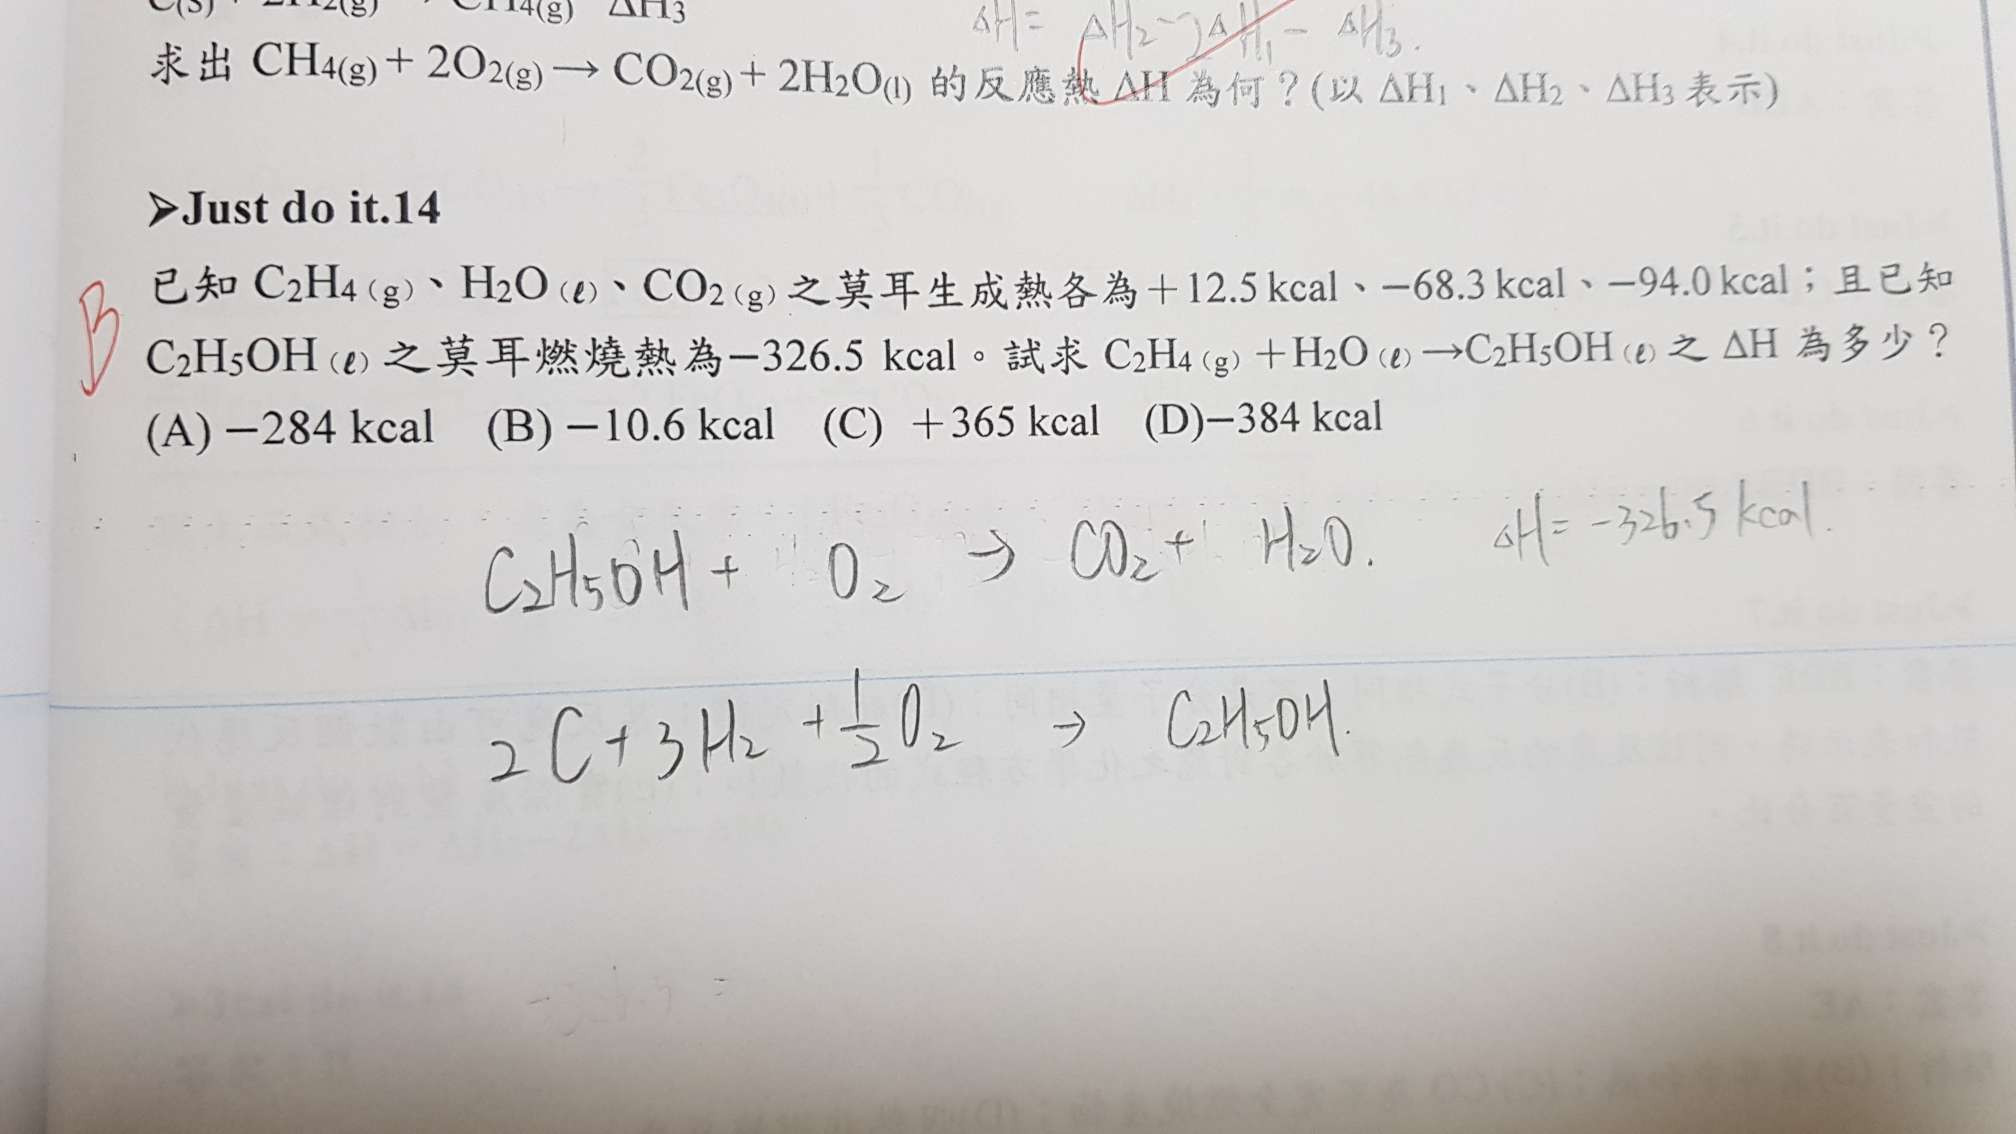 C(s) + 2H2(g) → CH4(g) ΔH3
ΔH = ΔH2 - 2ΔH1 - ΔH3.
求出 CH4(g) + 2O2(g) → CO2(g) + 2H2O(l) 的反應熱 ΔH 為何？(以 ΔH1、ΔH2、ΔH3 表示)
➢Just do it.14
B
已知 C2H4 (g)、H2O (ℓ)、CO2 (g) 之莫耳生成熱各為＋12.5 kcal、－68.3 kcal、－94.0 kcal；且已知
C2H5OH (ℓ) 之莫耳燃燒熱為－326.5 kcal。試求 C2H4 (g) ＋H2O (ℓ) →C2H5OH (ℓ) 之 ΔH 為多少？
(A) －284 kcal (B) －10.6 kcal (C) ＋365 kcal (D)－384 kcal
C2H5OH + O2 → CO2 + H2O. ΔH = -326.5 kcal.
2C + 3H2 + 1/2 O2 → C2H5OH.